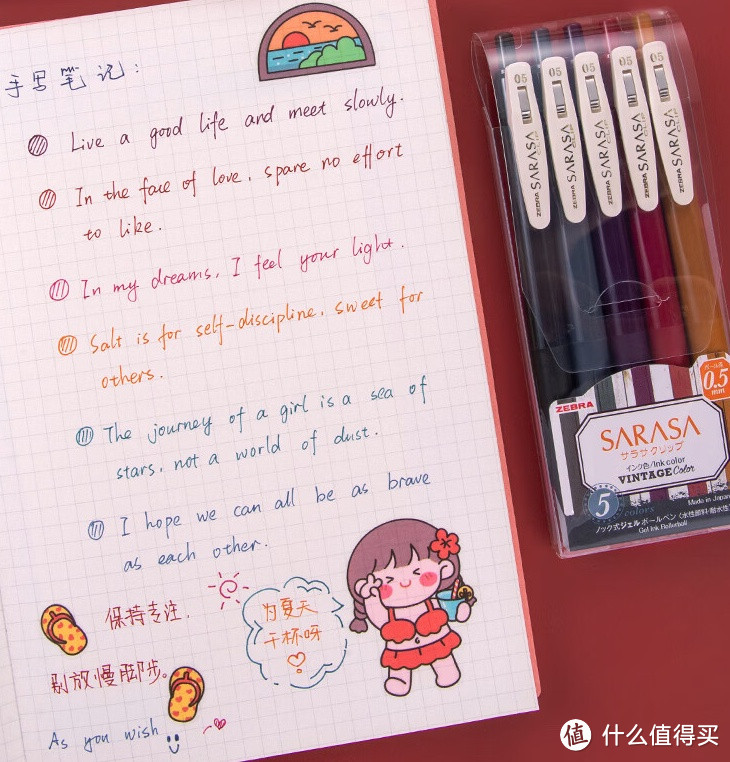 手写笔记：
Live a good life and meet slowly.
In the face of love, spare no effort
to like.
In my dreams, I feel your light.
Salt is for self-discipline, sweet for
others.
The journey of a girl is a sea of
stars, not a world of dust.
I hope we can all be as brave
as each other.
保持专注，
别放慢脚步。
As you wish
为夏天
干杯呀
05 05 05 05 05
ZEBRA SARASA CLIP
ZEBRA SARASA CLIP
ZEBRA SARASA CLIP
ZEBRA SARASA CLIP
ZEBRA SARASA CLIP
ボール径
0.5
mm
ZEBRA
SARASA
サラサクリップ
インク色/Ink color
VINTAGE Color
5 colors
Made in Japan
ノック式ジェルボールペン〈水性顔料・耐水性〉
Gel Ink Rollerball
值 什么值得买